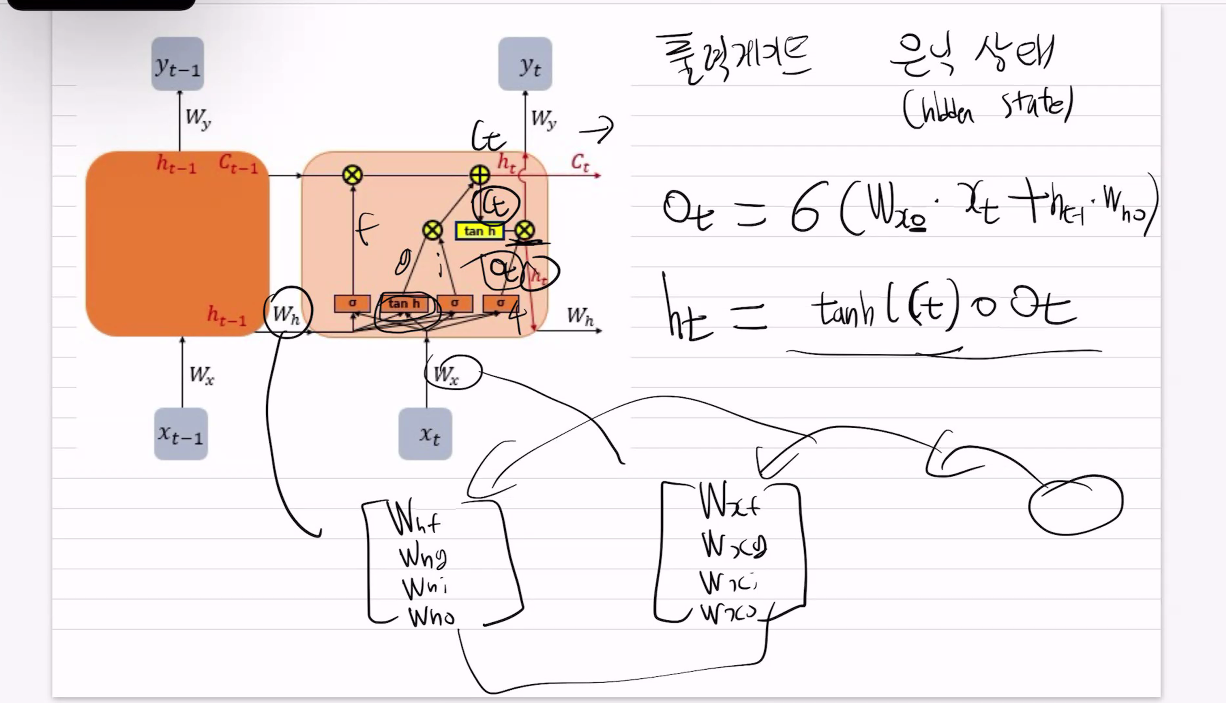 출력게이트 은닉 상태
(hidden state)
y_{t-1}
y_t
W_y
W_y
C_t →
h_{t-1} C_{t-1}
h_t C_t
C_t
f
tan h
g i
O_t h_t
σ tan h σ σ
4
h_{t-1} W_h
W_h
W_x
W_x
x_{t-1}
x_t
O_t = 6(W_{xo} · x_t + h_{t-1} · W_{ho})
h_t = tanh(C_t) ∘ O_t
W_{hf}
W_{hg}
W_{hi}
W_{ho}
W_{xf}
W_{xg}
W_{xi}
W_{xo}